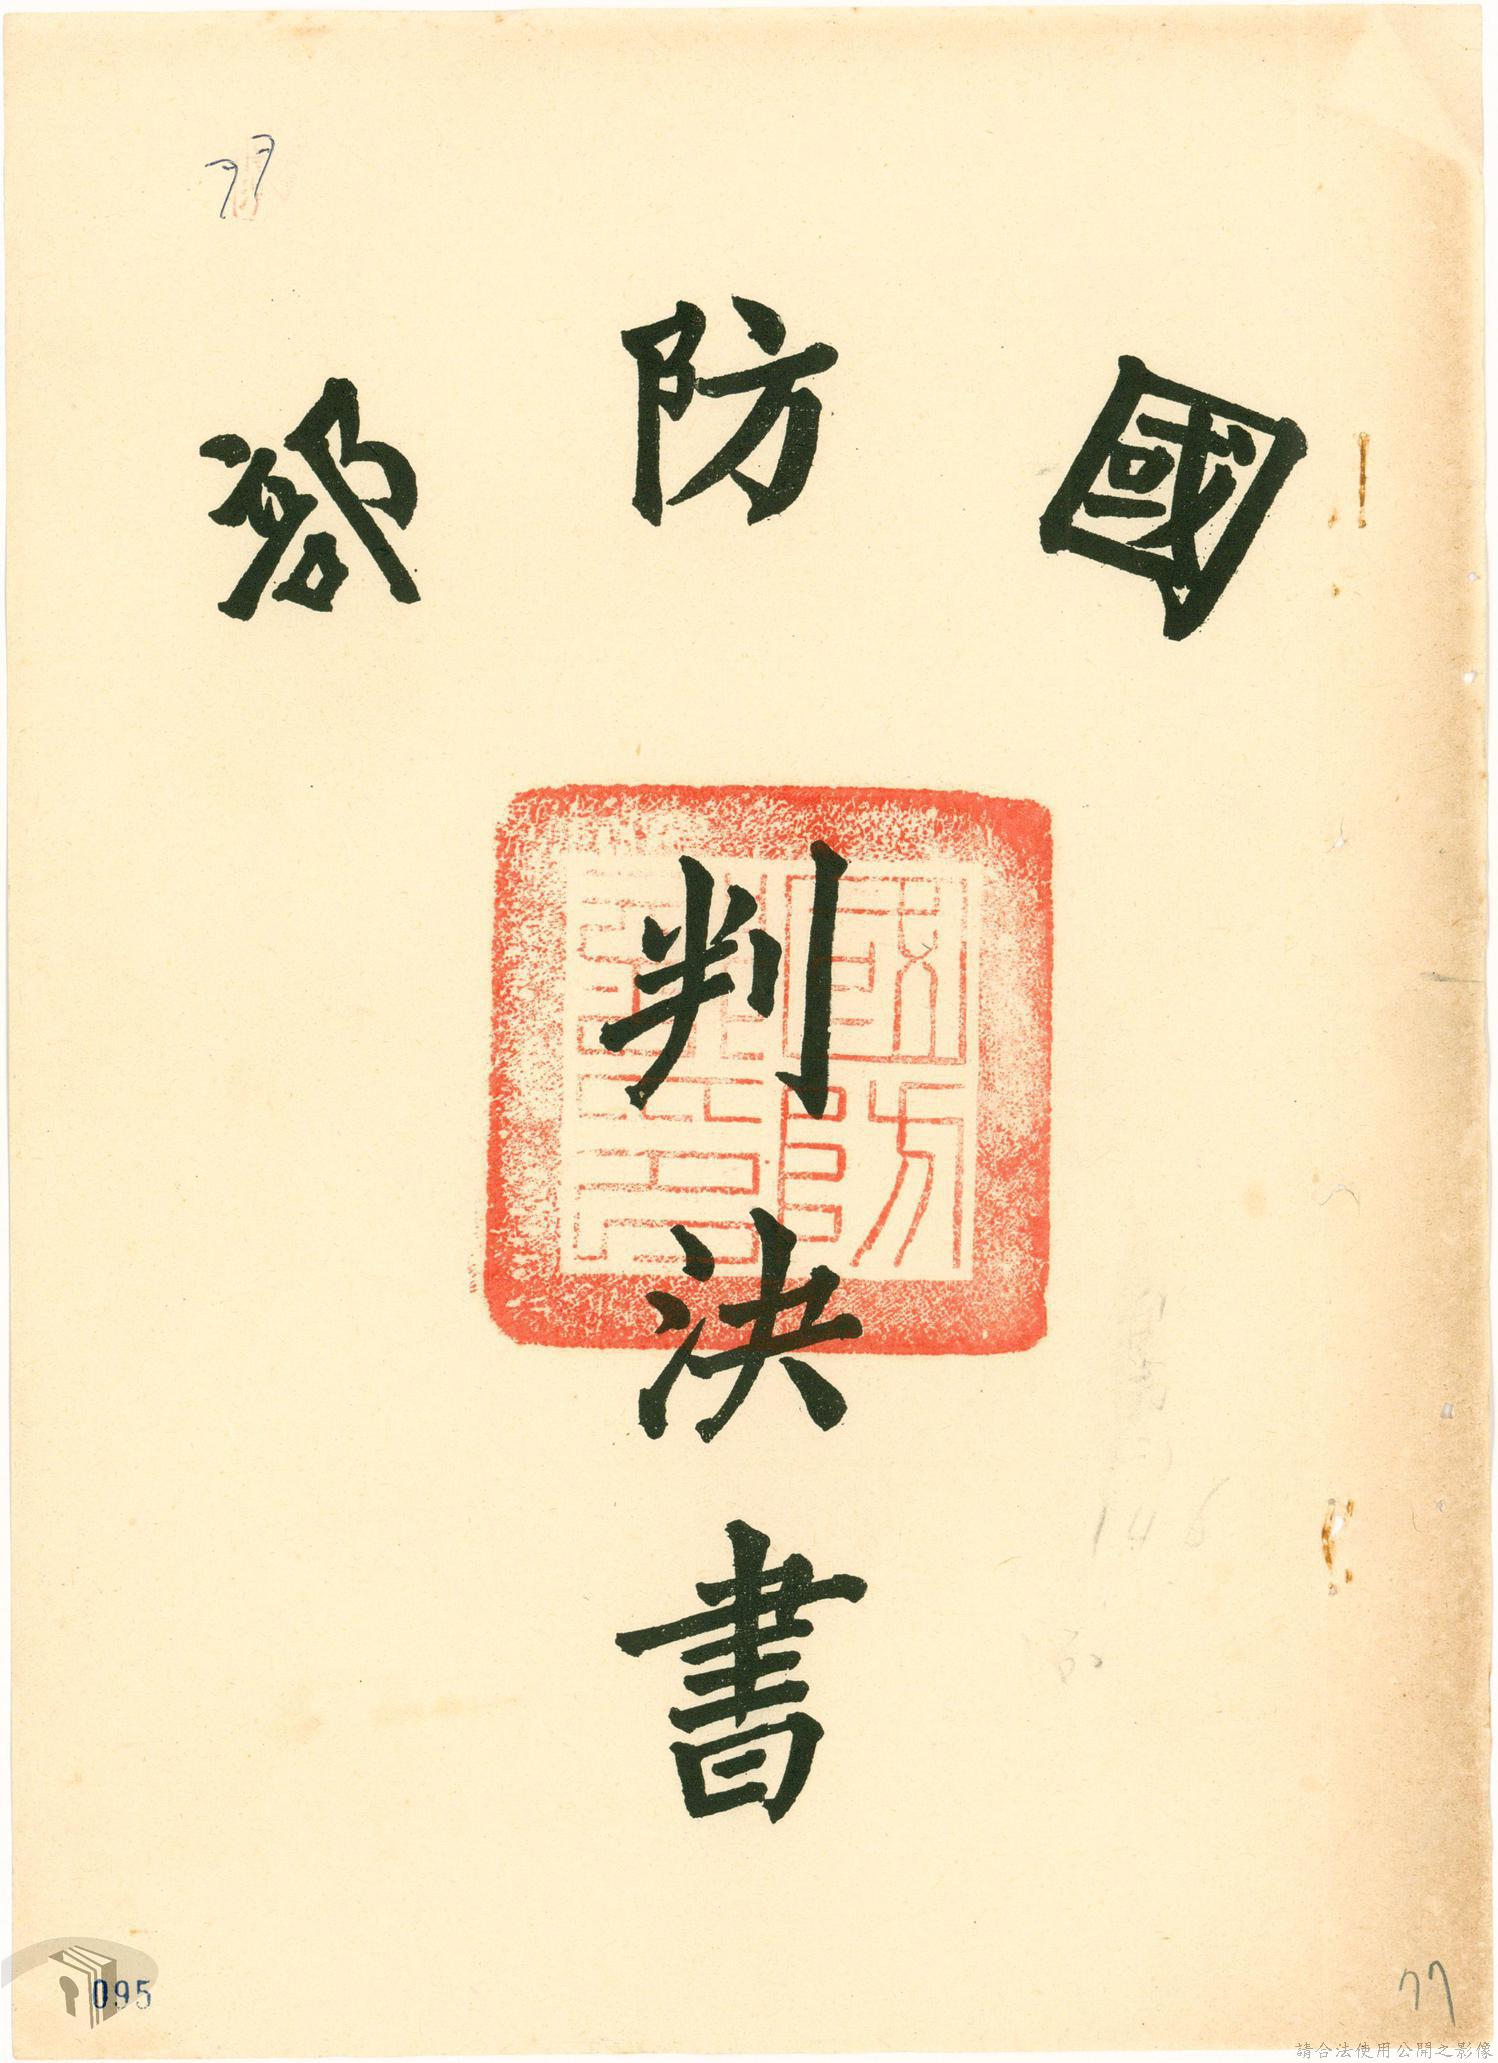 77
國防部
判決書
國防部印
146
095
77
請合法使用公開之影像